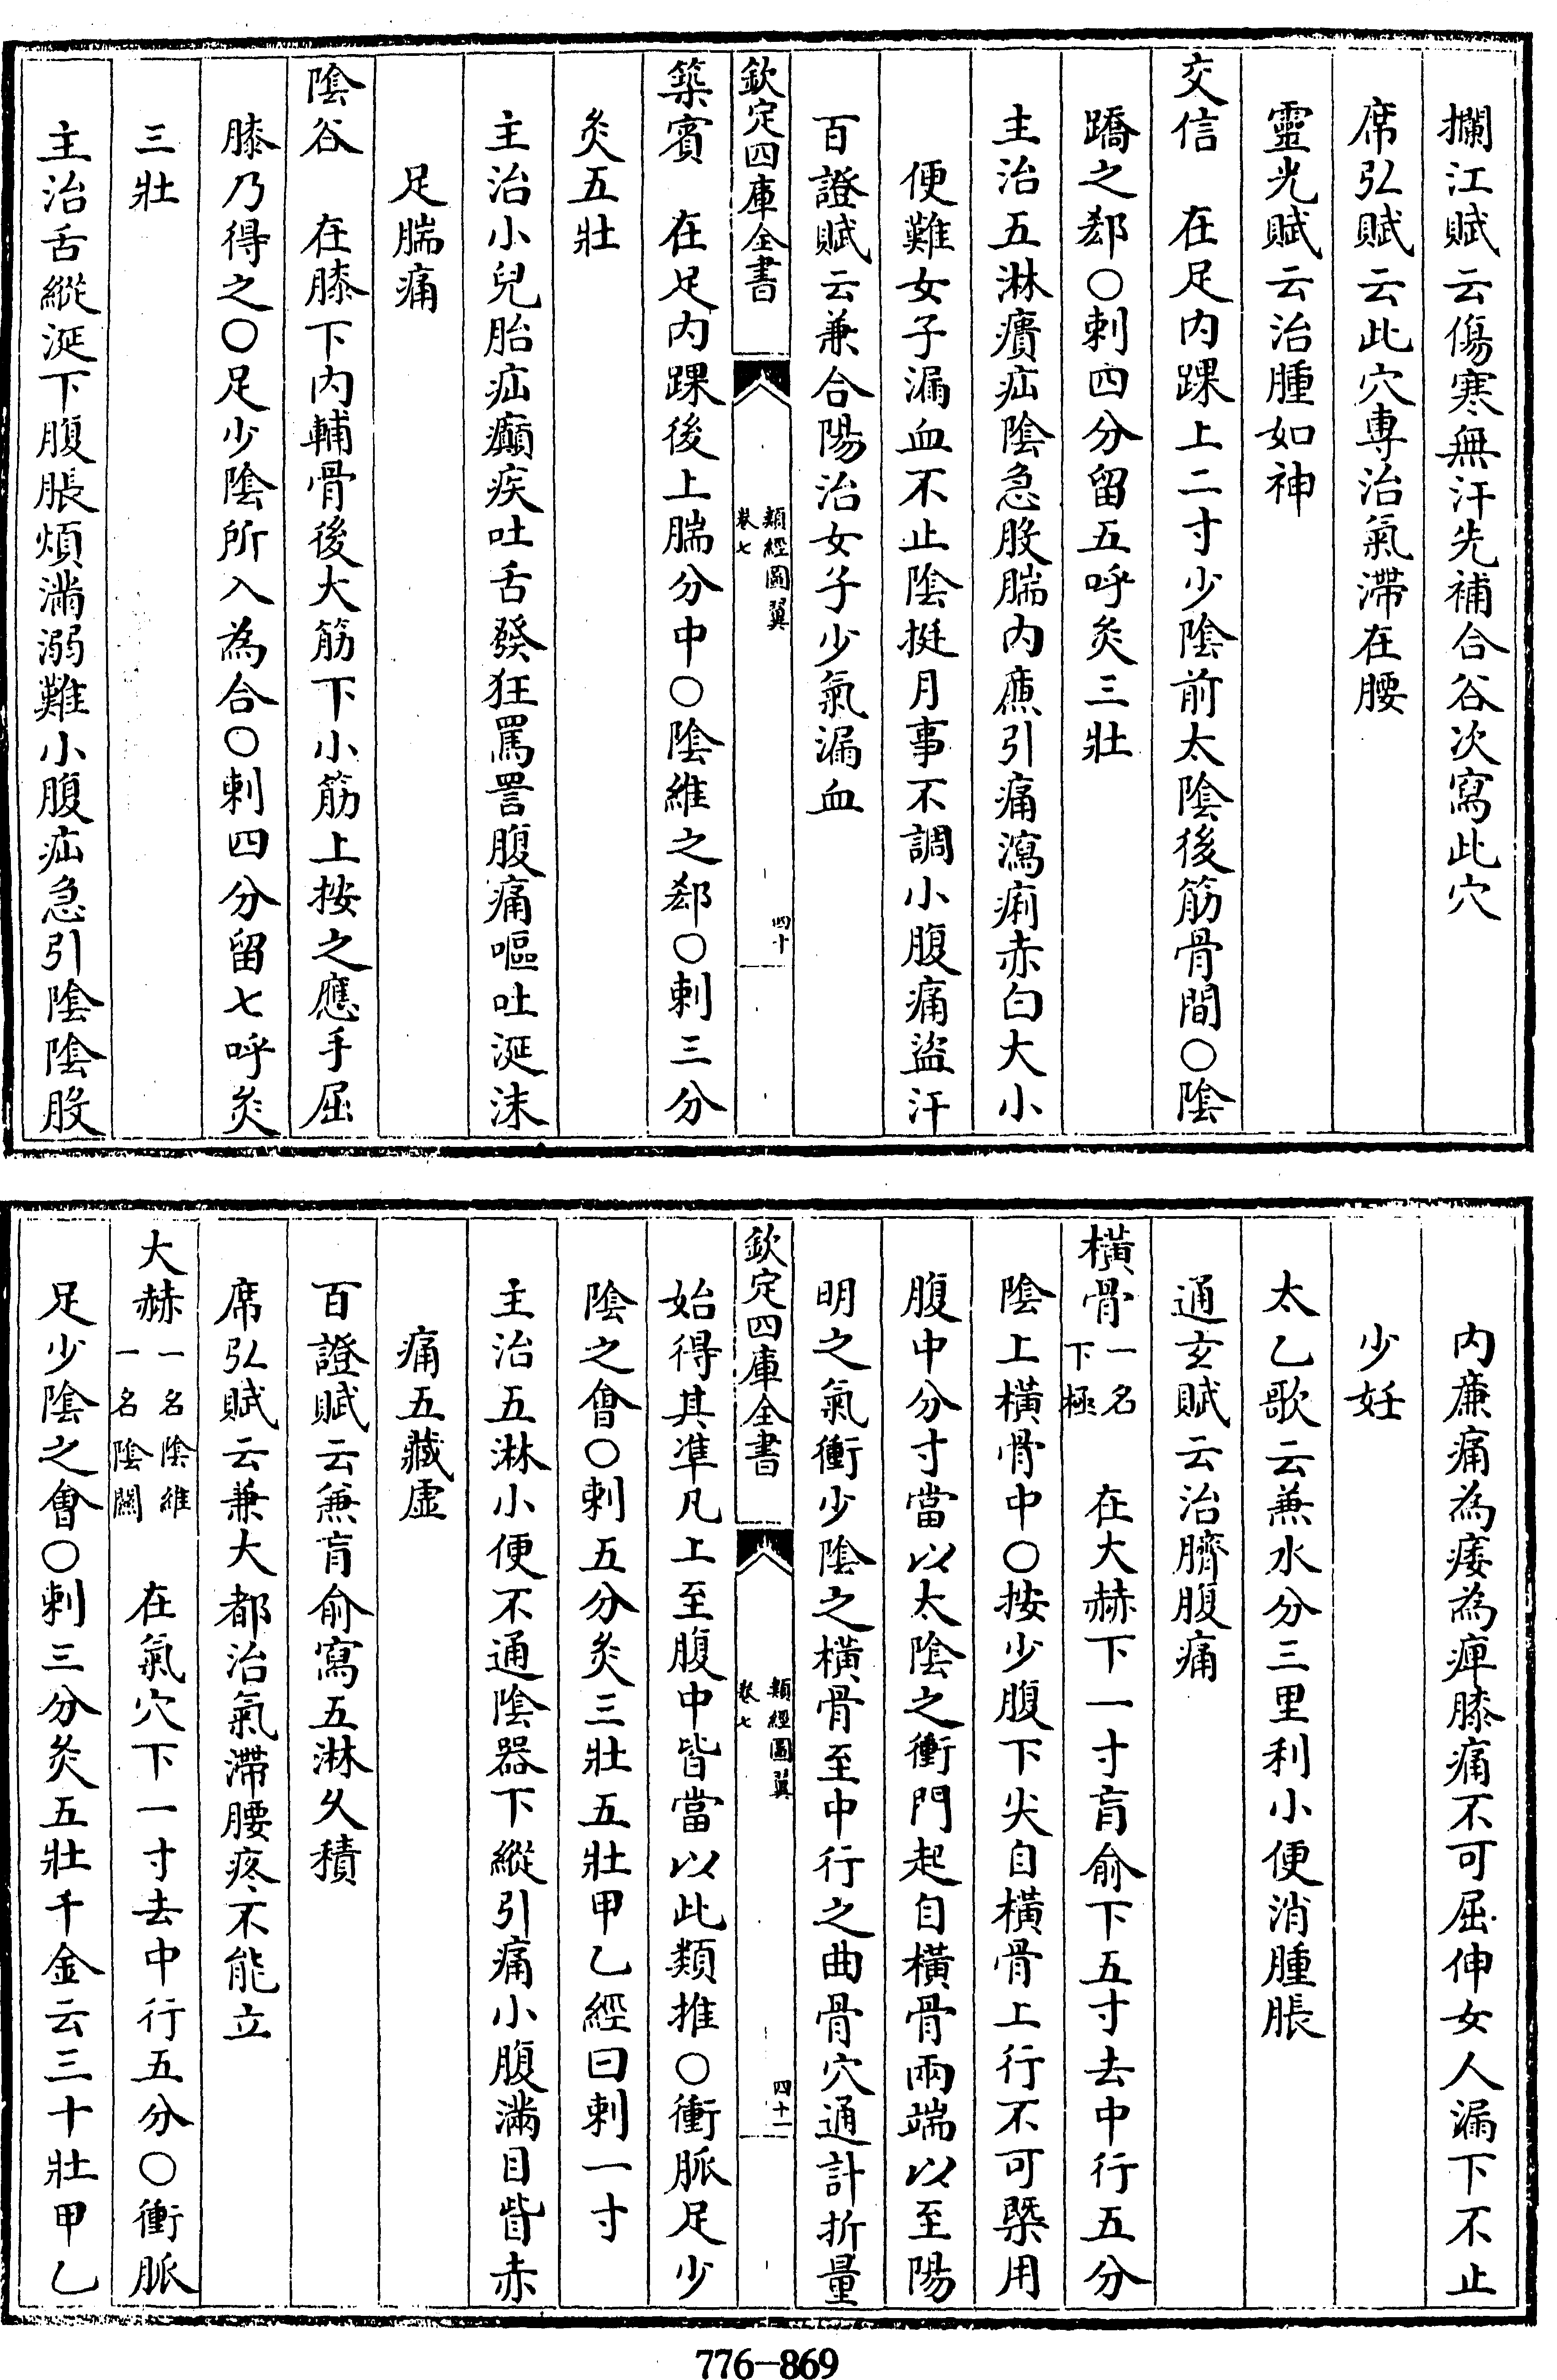 攔江賦云傷寒無汗先補合谷次寫此穴
席弘賦云此穴專治氣滯在腰
靈光賦云治腫如神
交信　在足内踝上二寸少陰前太陰後筋骨間○陰
蹻之郄○刺四分留五呼灸三壯
主治五淋㿉疝陰急股腨内廉引痛瀉痢赤白大小
便難女子漏血不止陰挺月事不調小腹痛盜汗
百證賦云兼合陽治女子少氣漏血
欽定四庫全書　類經圖翼　卷七　四十
築賓　在足内踝後上腨分中○陰維之郄○刺三分
灸五壯
主治小兒胎疝癲疾吐舌發狂罵詈腹痛嘔吐涎沫
足腨痛
陰谷　在膝下内輔骨後大筋下小筋上按之應手屈
膝乃得之○足少陰所入為合○刺四分留七呼灸
三壯
主治舌縱涎下腹脹煩滿溺難小腹疝急引陰陰股
内廉痛為痿為痺膝痛不可屈伸女人漏下不止
少妊
太乙歌云兼水分三里利小便消腫脹
通玄賦云治臍腹痛
横骨一名下極　在大赫下一寸肓俞下五寸去中行五分
陰上横骨中○按少腹下尖自横骨上行不可槩用
腹中分寸當以太陰之衝門起自横骨兩端以至陽
明之氣衝少陰之横骨至中行之曲骨穴通計折量
欽定四庫全書　類經圖翼　卷七　四十一
始得其準凡上至腹中皆當以此類推○衝脈足少
陰之會○刺五分灸三壯五壯甲乙經曰刺一寸
主治五淋小便不通陰器下縱引痛小腹滿目眥赤
痛五藏虛
百證賦云兼肓俞寫五淋久積
席弘賦云兼大都治氣滯腰疼不能立
大赫一名陰維一名陰關　在氣穴下一寸去中行五分○衝脈
足少陰之會○刺三分灸五壯千金云三十壯甲乙
776-869